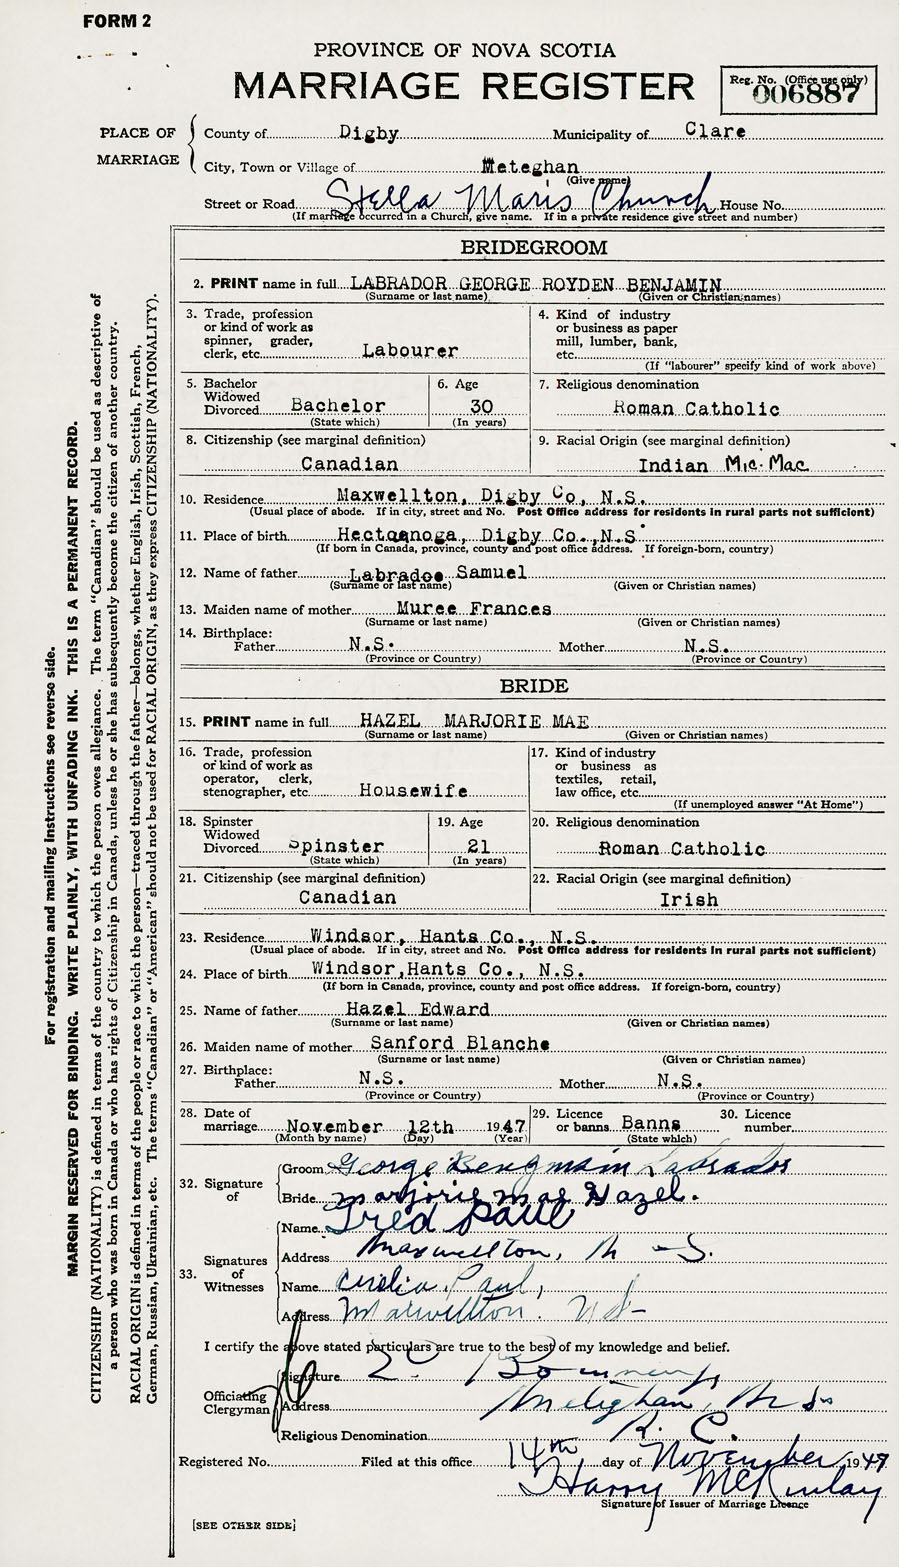 FORM 2
PROVINCE OF NOVA SCOTIA
MARRIAGE REGISTER
Reg. No. (Office use only)
006887
PLACE OF MARRIAGE
County of Digby Municipality of Clare
City, Town or Village of Meteghan
(Give name)
Street or Road Stella Maris Church House No.
(If marriage occurred in a Church, give name. If in a private residence give street and number)
BRIDEGROOM
2. PRINT name in full LABRADOR GEORGE ROYDEN BENJAMIN
(Surname or last name) (Given or Christian names)
3. Trade, profession or kind of work as spinner, grader, clerk, etc. Labourer
4. Kind of industry or business as paper mill, lumber, bank, etc.
(If "labourer" specify kind of work above)
5. Bachelor Widowed Divorced Bachelor
(State which)
6. Age 30
(In years)
7. Religious denomination
Roman Catholic
8. Citizenship (see marginal definition)
Canadian
9. Racial Origin (see marginal definition)
Indian Mic. Mac
10. Residence Maxwellton, Digby Co, N.S.
(Usual place of abode. If in city, street and No. Post Office address for residents in rural parts not sufficient)
11. Place of birth Hectoanoga, Digby Co., N.S
(If born in Canada, province, county and post office address. If foreign-born, country)
12. Name of father Labradoe Samuel
(Surname or last name) (Given or Christian names)
13. Maiden name of mother Muree Frances
(Surname or last name) (Given or Christian names)
14. Birthplace:
Father N.S. Mother N.S.
(Province or Country) (Province or Country)
BRIDE
15. PRINT name in full HAZEL MARJORIE MAE
(Surname or last name) (Given or Christian names)
16. Trade, profession or kind of work as operator, clerk, stenographer, etc. Housewife
17. Kind of industry or business as textiles, retail, law office, etc.
(If unemployed answer "At Home")
18. Spinster Widowed Divorced Spinster
(State which)
19. Age 21
(In years)
20. Religious denomination
Roman Catholic
21. Citizenship (see marginal definition)
Canadian
22. Racial Origin (see marginal definition)
Irish
23. Residence Windsor, Hants Co., N.S.
(Usual place of abode. If in city, street and No. Post Office address for residents in rural parts not sufficient)
24. Place of birth Windsor, Hants Co., N.S.
(If born in Canada, province, county and post office address. If foreign-born, country)
25. Name of father Hazel Edward
(Surname or last name) (Given or Christian names)
26. Maiden name of mother Sanford Blanche
(Surname or last name) (Given or Christian names)
27. Birthplace:
Father N.S. Mother N.S.
(Province or Country) (Province or Country)
28. Date of marriage November 12th 1947
(Month by name) (Day) (Year)
29. Licence or banns Banns
(State which)
30. Licence number
32. Signature of
Groom George Bengmain Labrador
Bride marjorie mae Hazel.
33. Signatures of Witnesses
Name Fred Paul
Address Maxwellton, N - S.
Name Paul,
Address Maxwellton. N S -
I certify the above stated particulars are true to the best of my knowledge and belief.
Officiating Clergyman
Signature
Address Meteghan, N S
Religious Denomination R. C.
Registered No. Filed at this office 14th day of November 1947
Harry McKinlay
Signature of Issuer of Marriage Licence
[SEE OTHER SIDE]
For registration and mailing instructions see reverse side.
MARGIN RESERVED FOR BINDING. WRITE PLAINLY, WITH UNFADING INK. THIS IS A PERMANENT RECORD.
CITIZENSHIP (NATIONALITY) is defined in terms of the country to which the person owes allegiance. The term "Canadian" should be used as descriptive of
a person who was born in Canada or who has rights of Citizenship in Canada, unless he or she has subsequently become the citizen of another country.
RACIAL ORIGIN is defined in terms of the people or race to which the person—traced through the father—belongs, whether English, Irish, Scottish, French,
German, Russian, Ukrainian, etc. The terms "Canadian" or "American" should not be used for RACIAL ORIGIN, as they express CITIZENSHIP (NATIONALITY).